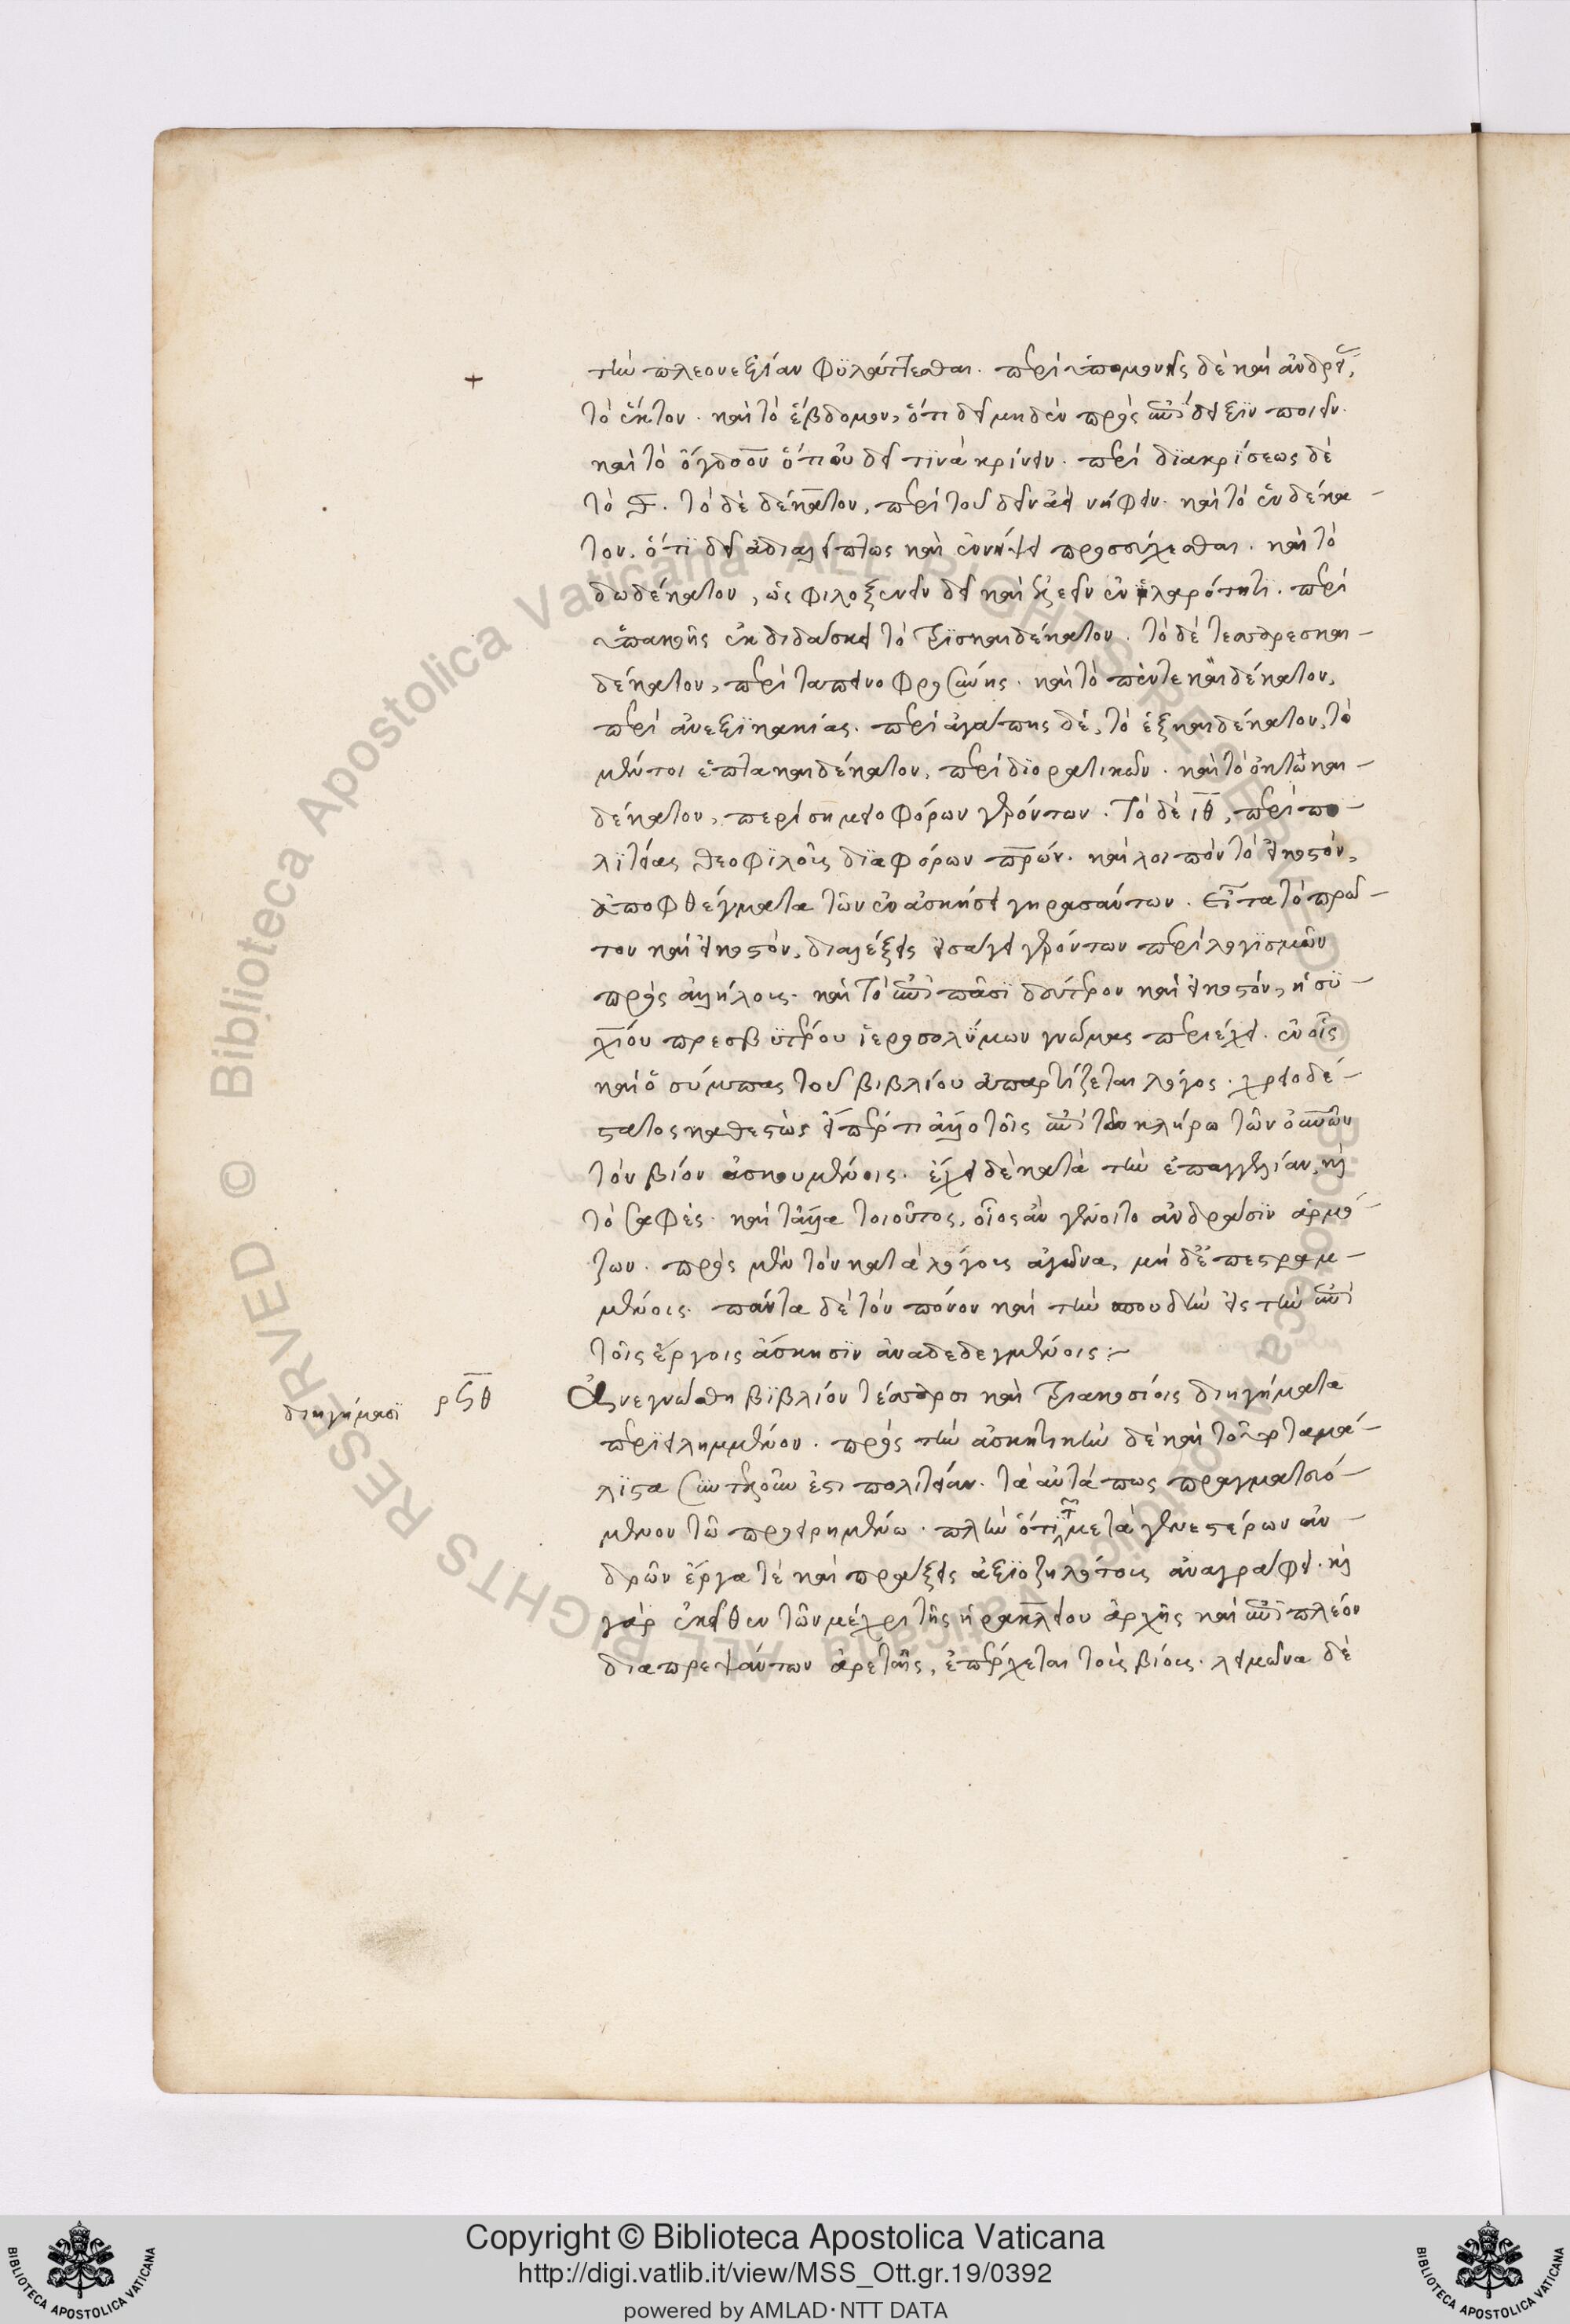 τὴν πλεονεξίαν φϋλάττεσθαι. περὶ ὑπομονῆς δὲ καὶ ἀνδρεί,
τὸ ἕκτον. καὶ τὸ ἕβδομον, ὅτι δεῖ μηδὲν πρὸς ἐπίδειξϊν ποιεῖν.
καὶ τὸ ὄγδοον ὅτι οὐ δεῖ τϊνὰ κρίνειν. περὶ δϊακρϊσεως δὲ
τὸ θ. τὸ δὲ δέκατον, περὶ τοῦ δεῖν ἀεὶ νήφειν. καὶ τὸ ἑνδέκα-
τον, ὅτϊ δεῖ ἀδιαλείπτως καὶ ἐν νήψει προσεύχεσθαι. καὶ τὸ
δωδέκατον, ὡς φιλοξενεῖν δεῖ καὶ ἐλεεῖν ἐν ἱλαρότητι. περὶ
ὑπακοῆς ἐκδιδάσκει τὸ τρϊσκαιδέκατον. τὸ δὲ τεσσαρεσκαι-
δέκατον, περὶ ταπεινοφροσύνης. καὶ τὸ πεντεκαιδέκατον,
περὶ ἀνεξϊκακίας. περὶ ἀγάπης δὲ, τὸ ἑξκαιδέκατον, τὸ
μέντοι ἑπτακαιδέκατον, περὶ δϊορατικῶν. καὶ τὸ ὀκτωκαι-
δέκατον, περὶ σημειοφόρων γερόντων. τὸ δὲ ιθ, περὶ πο-
λϊτείας θεοφϊλοῦς δϊαφόρων πρων. καὶ λοιπὸν τὸ εἰκοστόν,
ἀποφθέγματα τῶν ἐν ἀσκήσει γηρασάντων. εἶτα τὸ πρῶ-
τον καὶ εἰκοστόν, διαλέξεις εἰσάγει γερόντων περὶ λογϊσμῶν
πρὸς ἀλλήλους. καὶ τὸ ἐπὶ πᾶσϊ δεύτερον καὶ εἰκοστόν, ἡσϋ-
χίου πρεσβϋτέρου ἱεροσολϋμων γνώμας περιέχει. ἐν οἷς
καὶ ὁ σύμπας τοῦ βιβλίου ἀπαρτίζεται λόγος. χρειωδέ-
στατος καθεστὼς εἴπερ τι ἄλλο τοῖς ἐπὶ τῶ κλήρω τῶν οὐνῶν
τὸν βίον ἀσκουμένοις. ἔχει δὲ κατὰ τὴν ἐπαγγελίαν, καὶ
τὸ σαφές. καὶ τἆλλα τοιοῦτος, οἷος ἂν γένοιτο ἀνδράσϊν ἁρμό-
ζων. πρὸς μὲν τὸν κατὰ λόγους ἀγῶνα, μὴ δὲ ἐπεστραμ-
μένοις. πάντα δὲ τὸν πόνον καὶ τὴν σπουδὴν εἰς τὴν ἐπὶ
τοῖς ἔργοις ἄσκησϊν ἀναδεδεγμένοις:-
διηγήμασϊ ρϟθ Ἀνεγνώσθη βϊβλίον τέσσαρσι καὶ τριακοσίοις διηγήματα
περϊειλημμένον. πρὸς τὴν ἀσκητικὴν δὲ καὶ τοῦτο τὰ μά-
λϊστα συντελοῦν ἐστι πολιτείαν. τὰ αὐτά πως πραγματευό-
μενον τῶ προειρημένω. πλὴν ὅτϊ μετὰ γενεστέρων ἀν-
δρῶν ἔργα τὲ καὶ πράξεις ἀξϊοζηλώτους ἀναγράφει. καὶ
γὰρ ἐκεῖθεν τῶν μέχρι τῆς ἡρακλείου ἀρχῆς καὶ ἐπὶ πλέον
διαπρεψάντων ἀρεταῖς, ἐπέρχεται τοὺς βίους. λειμῶνα δὲ
Copyright © Biblioteca Apostolica Vaticana
http://digi.vatlib.it/view/MSS_Ott.gr.19/0392
powered by AMLAD·NTT DATA
BIBLIOTECA APOSTOLICA VATICANA
BIBLIOTECA APOSTOLICA VATICANA
Biblioteca Apostolica Vaticana ALL RIGHTS RESERVED ©